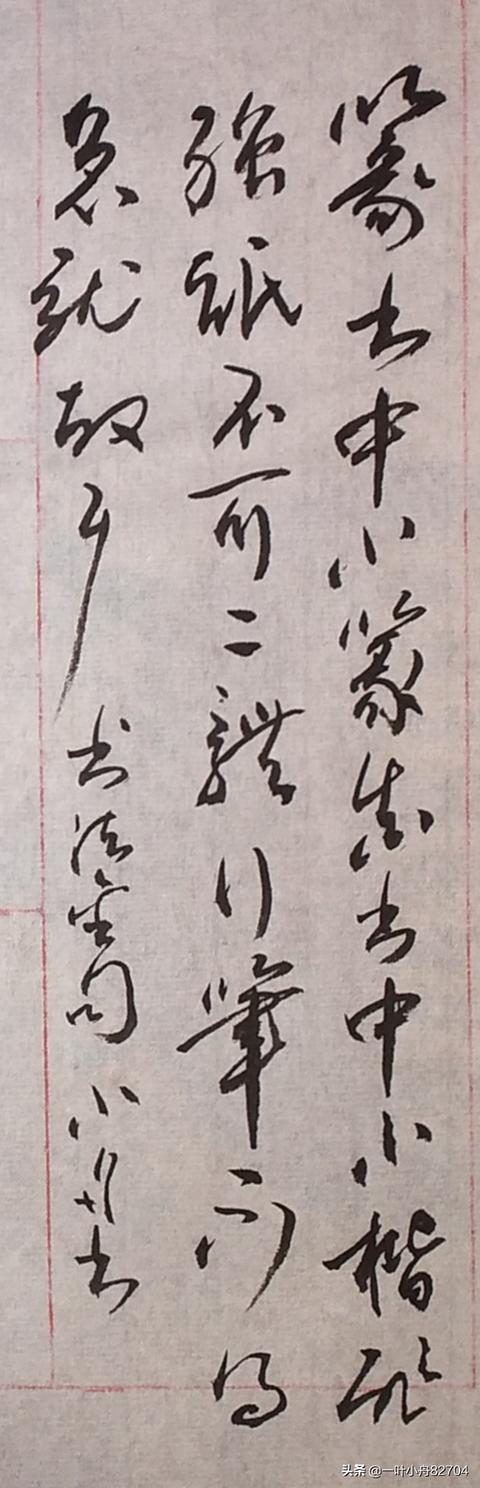 篆书中小篆真书中小楷
强不可二體行筆不得
急就故耳 书法金句 小舟书
头条 @一叶小舟82704